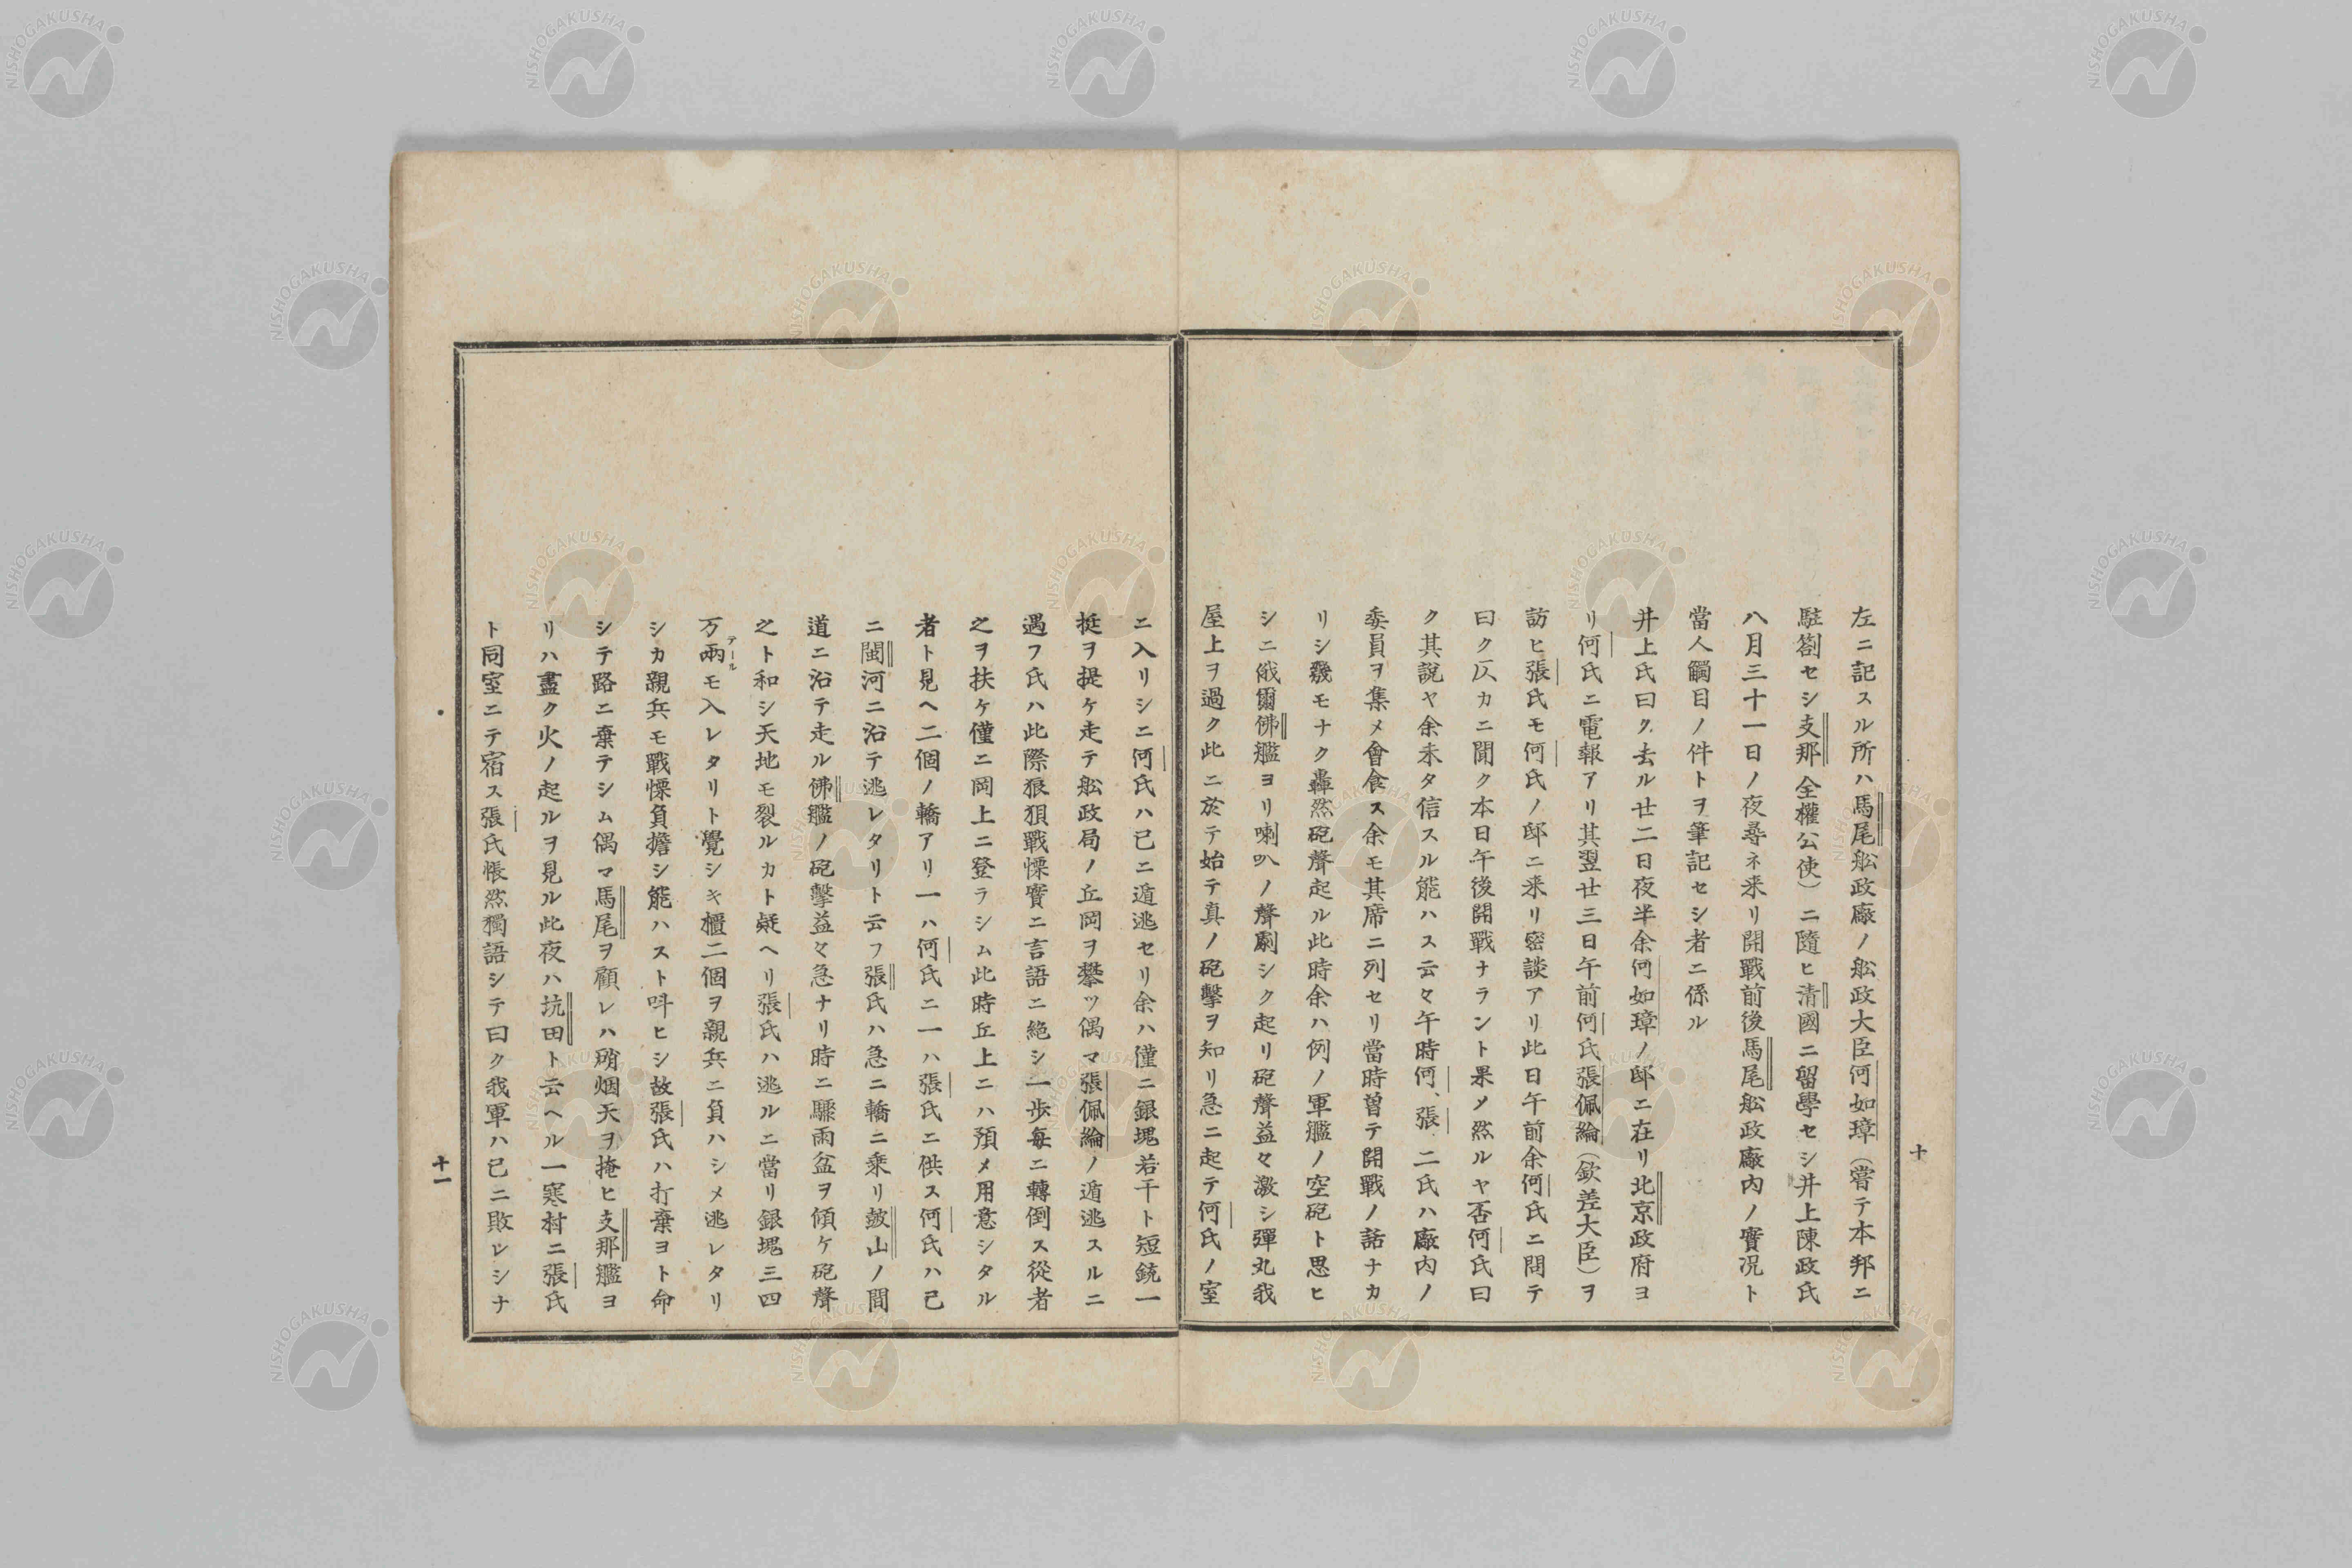 左ニ記スル所ハ馬尾舩政廠ノ舩政大臣何如璋（嘗テ本邦ニ
駐劄セシ支那全權公使）ニ隨ヒ清國ニ留學セシ井上陳政氏
八月三十一日ノ夜尋ネ来リ開戰前後馬尾舩政廠内ノ實况ト
當人觸目ノ件トヲ筆記セシ者ニ係ル
井上氏曰ク去ル廿二日夜半余何如璋ノ邸ニ在リ北京政府ヨ
リ何氏ニ電報アリ其翌廿三日午前何氏張佩綸（欽差大臣）ヲ
訪ヒ張氏モ何氏ノ邸ニ来リ密談アリ此日午前余何氏ニ問テ
曰ク仄カニ聞ク本日午後開戰ナラント果メ然ルヤ否何氏曰
ク其說ヤ余未タ信スル能ハス云々午時何、張二氏ハ廠内ノ
委員ヲ集メ會食ス余モ其席ニ列セリ當時曽テ開戰ノ話ナカ
リシ幾モナク轟然砲聲起ル此時余ハ例ノ軍艦ノ空砲ト思ヒ
シニ俄爾佛艦ヨリ喇叭ノ聲劇シク起リ砲聲益々激シ彈丸我
屋上ヲ過ク此ニ於テ始テ真ノ砲擊ヲ知リ急ニ起テ何氏ノ室
十
ニ入リシニ何氏ハ已ニ遁逃セリ余ハ僅ニ銀塊若干ト短銃一
挺ヲ提ケ走テ舩政局ノ丘岡ヲ攀ツ偶マ張佩綸ノ遁逃スルニ
遇フ氏ハ此際狼狽戰慄實ニ言語ニ絶シ一歩毎ニ轉倒ス從者
之ヲ扶ケ僅ニ岡上ニ登ラシム此時丘上ニハ預メ用意シタル
者ト見ヘ二個ノ轎アリ一ハ何氏ニ一ハ張氏ニ供ス何氏ハ已
ニ閩河ニ沿テ逃レタリト云フ張氏ハ急ニ轎ニ乘リ皷山ノ間
道ニ沿テ走ル佛艦ノ砲擊益々急ナリ時ニ驟雨盆ヲ傾ケ砲聲
之ト和シ天地モ裂ルカト疑ヘリ張氏ハ逃ルニ當リ銀塊三四
万兩テールモ入レタリト覺シキ櫃二個ヲ親兵ニ負ハシメ逃レタリ
シカ親兵モ戰慄負擔シ能ハスト呌ヒシ故張氏ハ打棄ヨト命
シテ路ニ棄テシム偶マ馬尾ヲ顧レハ硝烟天ヲ掩ヒ支那艦ヨ
リハ盡ク火ノ起ルヲ見ル此夜ハ坑田ト云ヘル一寒村ニ張氏
ト同室ニテ宿ス張氏悵然獨語シテ曰ク我軍ハ已ニ敗レシナ
十一
NISHOGAKUSHA